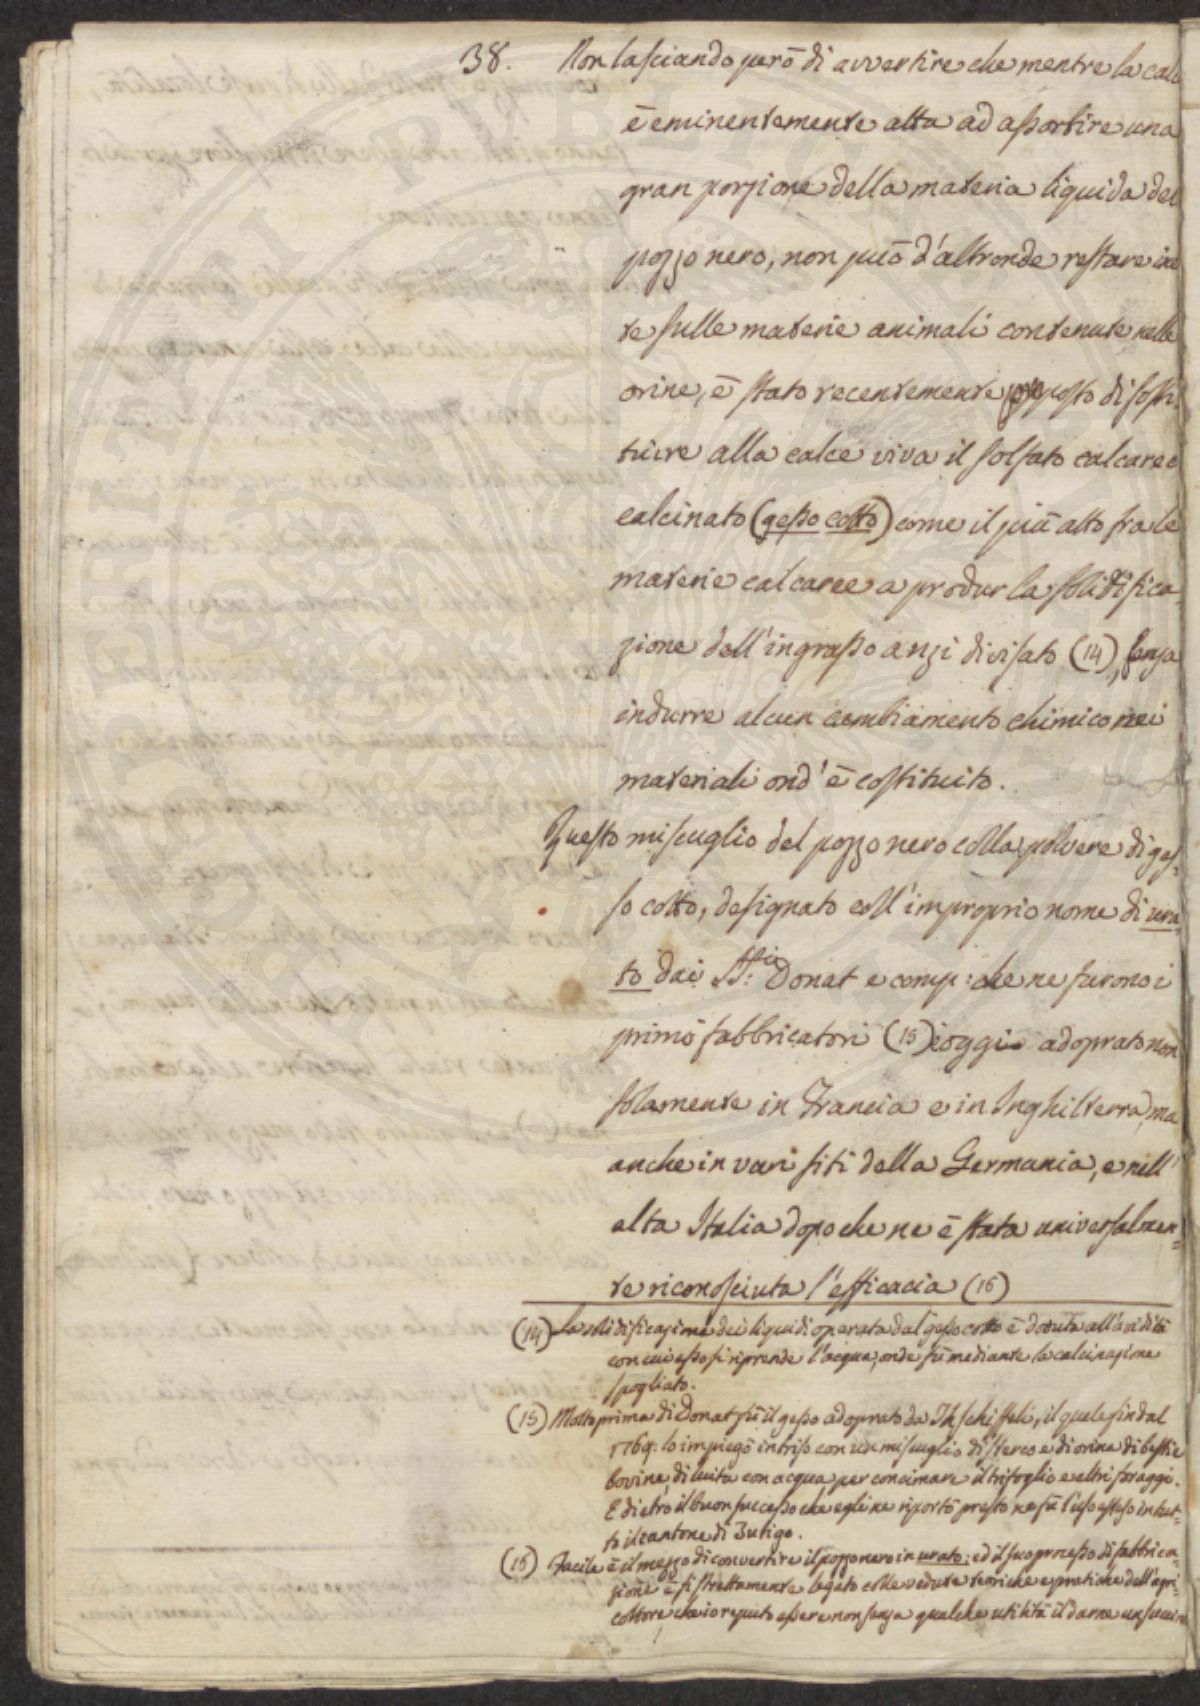 38. Non lasciando però di avvertire che mentre la calce
è eminentemente atta ad assorbire una
gran porzione della materia liquida del
pozzo nero, non può d'altronde restare iner
te sulle materie animali contenute nelle
orine, è stato recentemente proposto di sosti
tuire alla calce viva il solfato calcareo
calcinato (gesso cotto) come il più atto fra le
materie calcaree a produr la solidifica-
zione dell'ingrasso anzi divisato (14), senza
indurre alcun cambiamento chimico nei
materiali ond'è costituito.
Questo miscuglio del pozzo nero colla polvere di ges-
so cotto, designato coll'improprio nome di ura-
to dai SS:ri Donat e comp: che ne furono i
primi fabbricatori (15) è oggi adoprato non
solamente in Francia e in Inghilterra, ma
anche in vari siti della Germania, e nell'
alta Italia dopo che ne è stata universalmen=
te riconosciuta l'efficacia (16)
(14) La solidificazione dei liquidi operata dal gesso cotto è dovuta all'avidità
con cui esso si riprende l'acqua, onde fù mediante la calcinazione
spogliato.
(15) Molto prima di Donat fù il gesso adoprato da Thschiffeli, il quale sin dal
1769: lo impiegò intriso con un miscuglio di sterco e di orina di bestie
bovine, diluita con acqua per concimare il trifoglio e altri foraggi.
E dietro il buon successo che egli ne riportò presto ne fù l'uso esteso in tut-
to il cantone di Zurigo.
(16) Facile è il mezzo di convertire il pozzo nero in urato; ed il suo processo di fabbrica-
zione è sì strettamente legato colle vedute teoriche e pratiche dell'agri-
coltore, che io reputo essere non senza qualche utilità il darne un